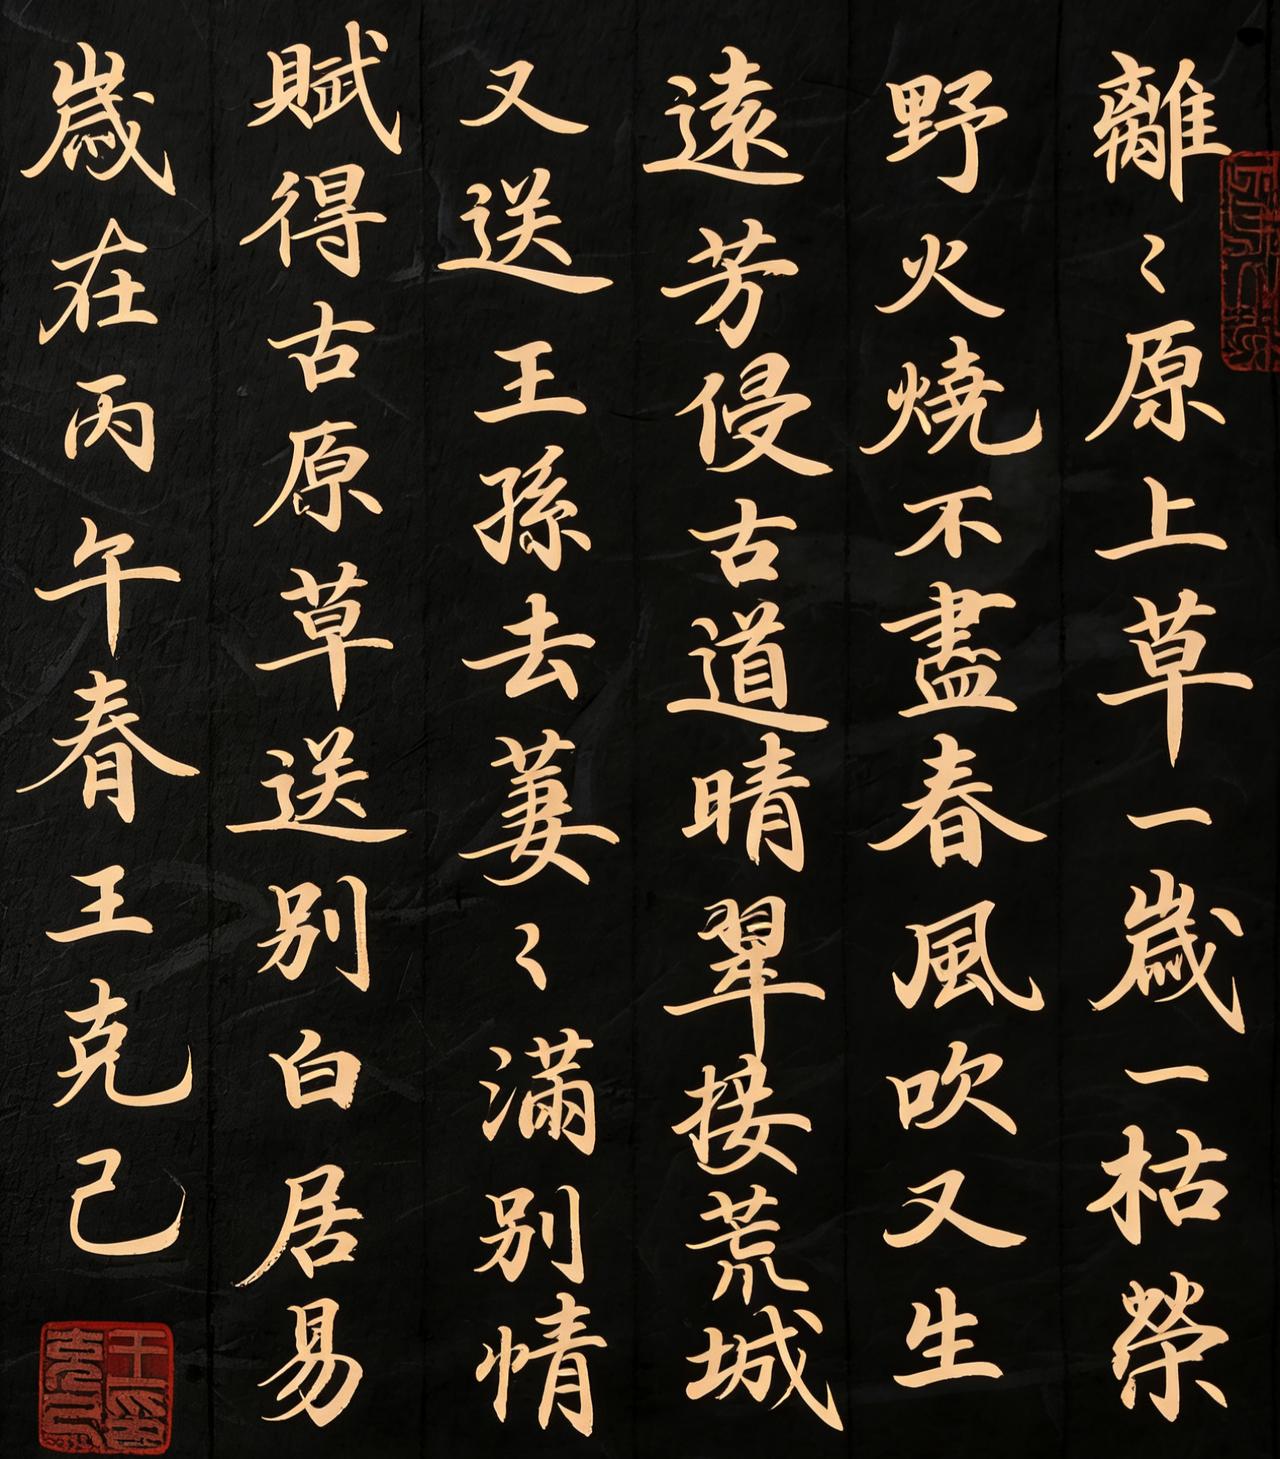 離〻原上草一歲一枯榮
野火燒不盡春風吹又生
遠芳侵古道晴翠接荒城
又送王孫去萋〻滿別情
賦得古原草送別白居易
歲在丙午春王克己